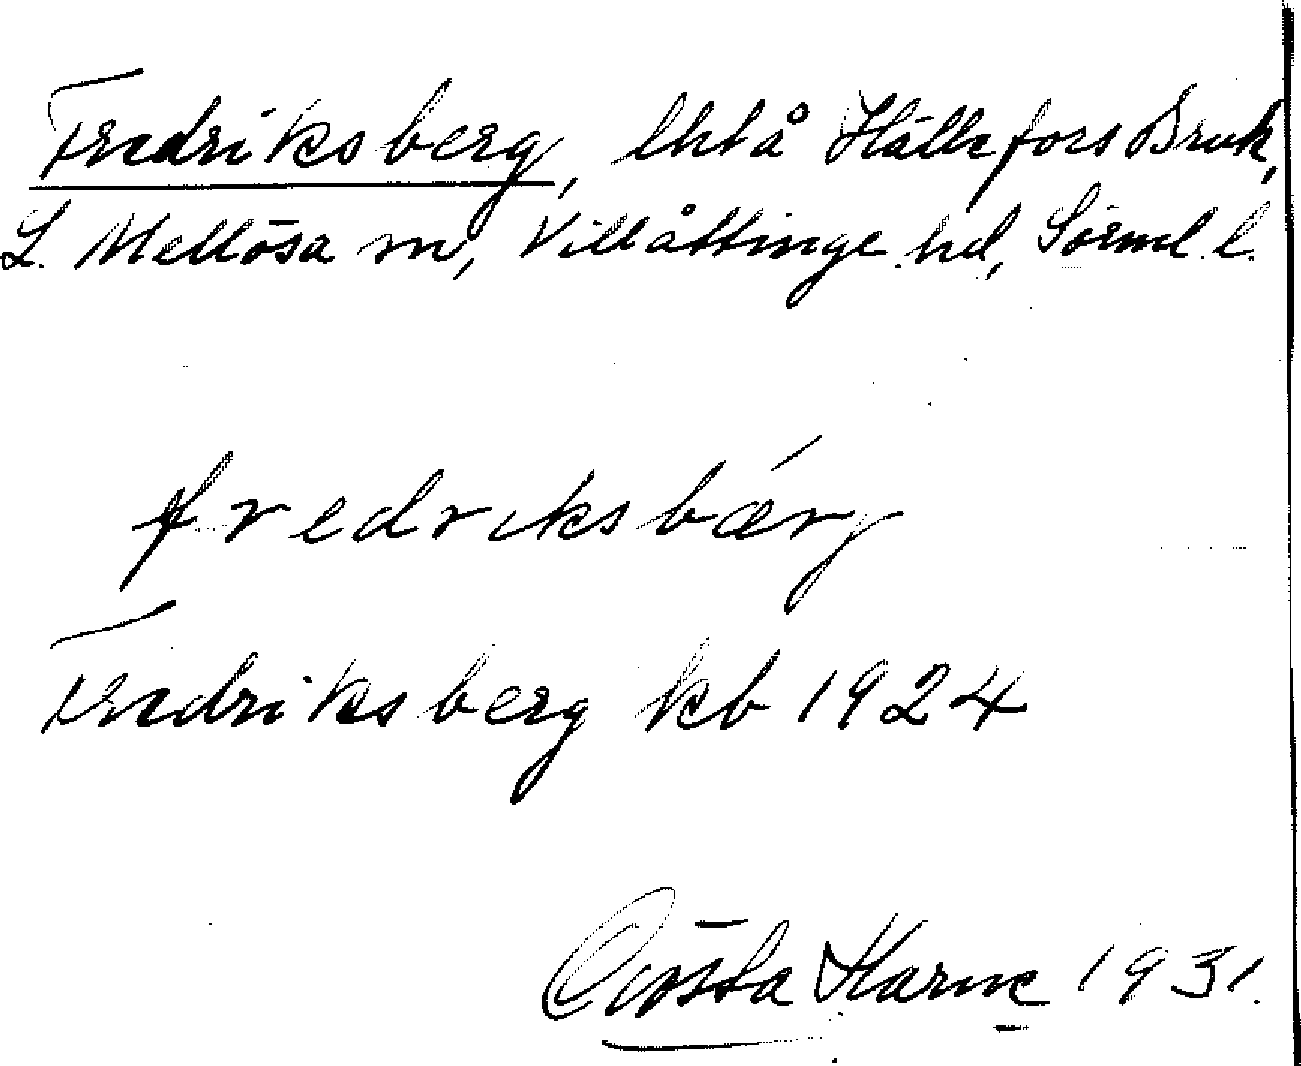 Fredriksberg, lht å Hällefors Bruk,
L. Mellösa sn, Villåttinge hd, Sörml. l.
fredriksbærj
Fredriksberg kb 1924
Gösta Harne 1931.